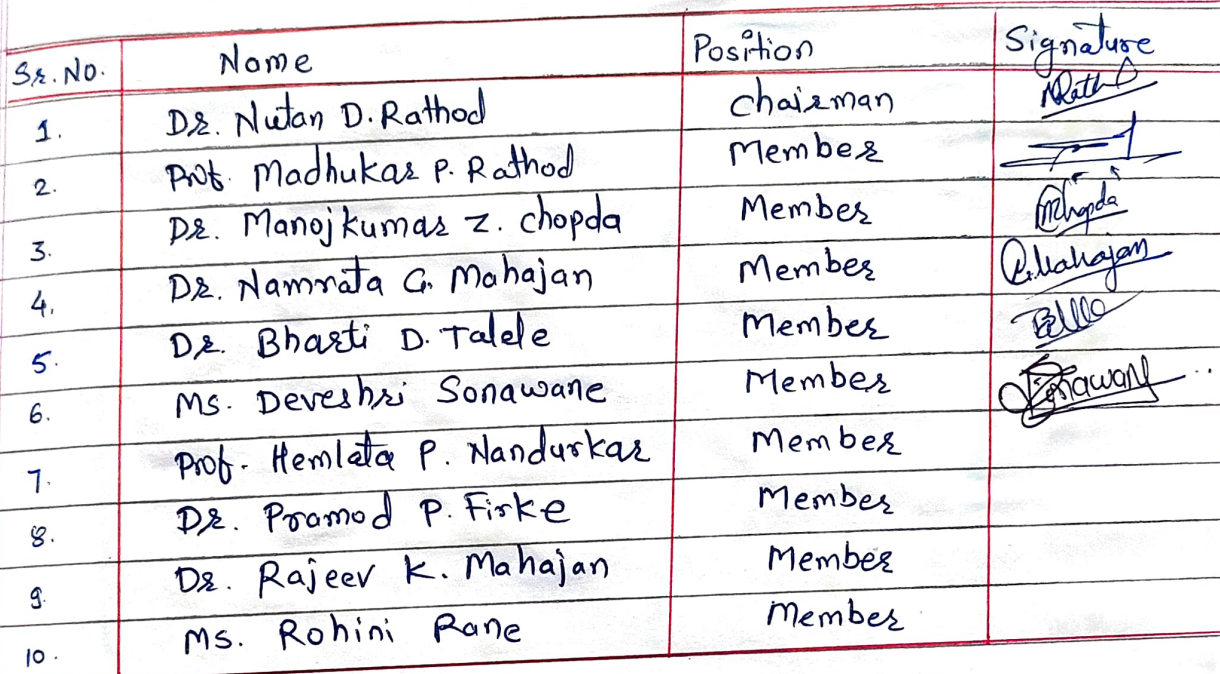 Sr. No. Name Position Signature
1. Dr. Nutan D. Rathod Chairman
2. Prof. Madhukar P. Rathod Member
3. Dr. Manojkumar Z. Chopda Member Chopda
4. Dr. Namrata G. Mahajan Member Mahajan
5. Dr. Bharti D. Talele Member
6. Ms. Deveshri Sonawane Member Sonawane
7. Prof. Hemlata P. Nandurkar Member
8. Dr. Pramod P. Firke Member
9. Dr. Rajeev K. Mahajan Member
10. Ms. Rohini Rane Member